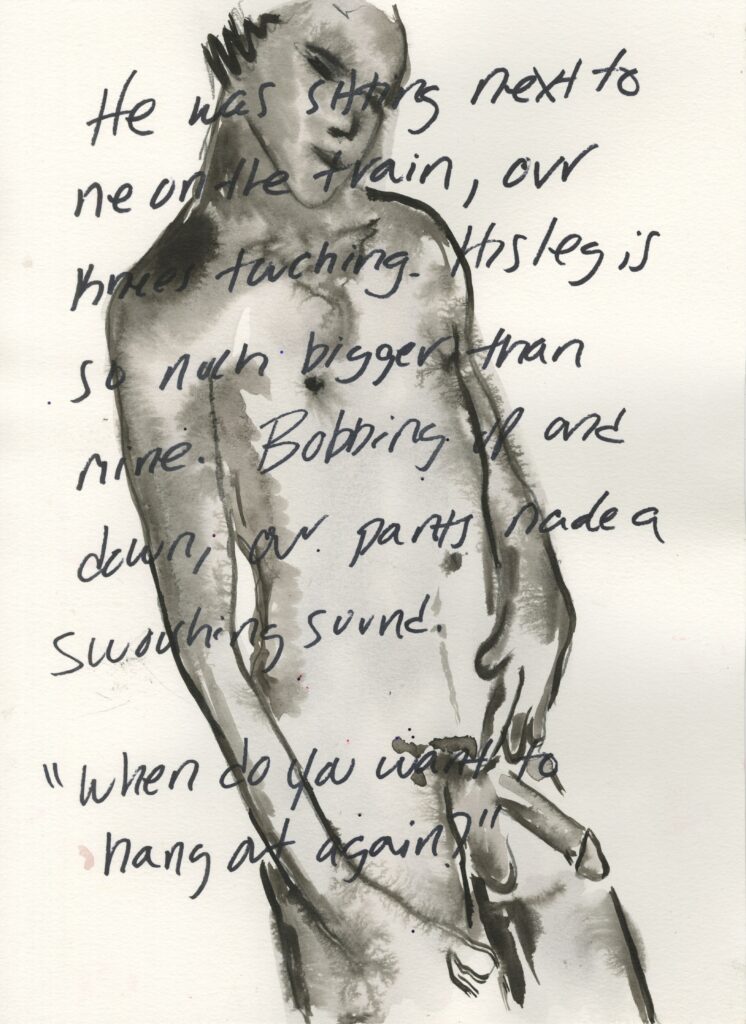 He was sitting next to
me on the train, our
knees touching. His leg is
so much bigger than
mine. Bobbing up and
down, our pants made a
swooshing sound.
"When do you want to
hang out again?"